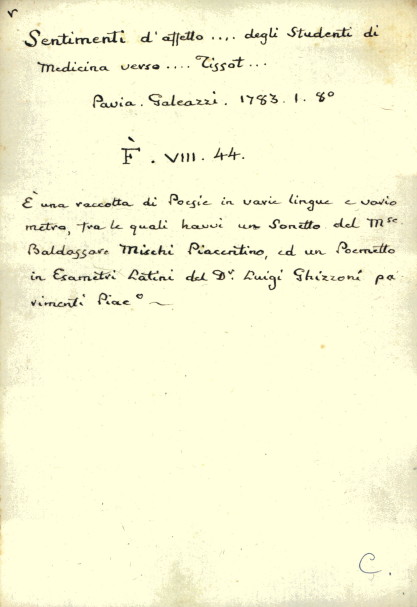 v
Sentimenti d'affetto .... degli Studenti di
Medicina verso .... Tissot ...
Pavia. Galeazzi. 1783. 1. 8º
F̀. VIII. 44.
È una raccotta di Poesie in varie lingue e vario
metro, fra le quali havvi un Sonetto del Mse.
Baldassare Mischi Piacentino, ed un Poemetto
in Esametri Latini del Dr. Luigi Ghizzoni pa
rimenti Piac.º ~
C.